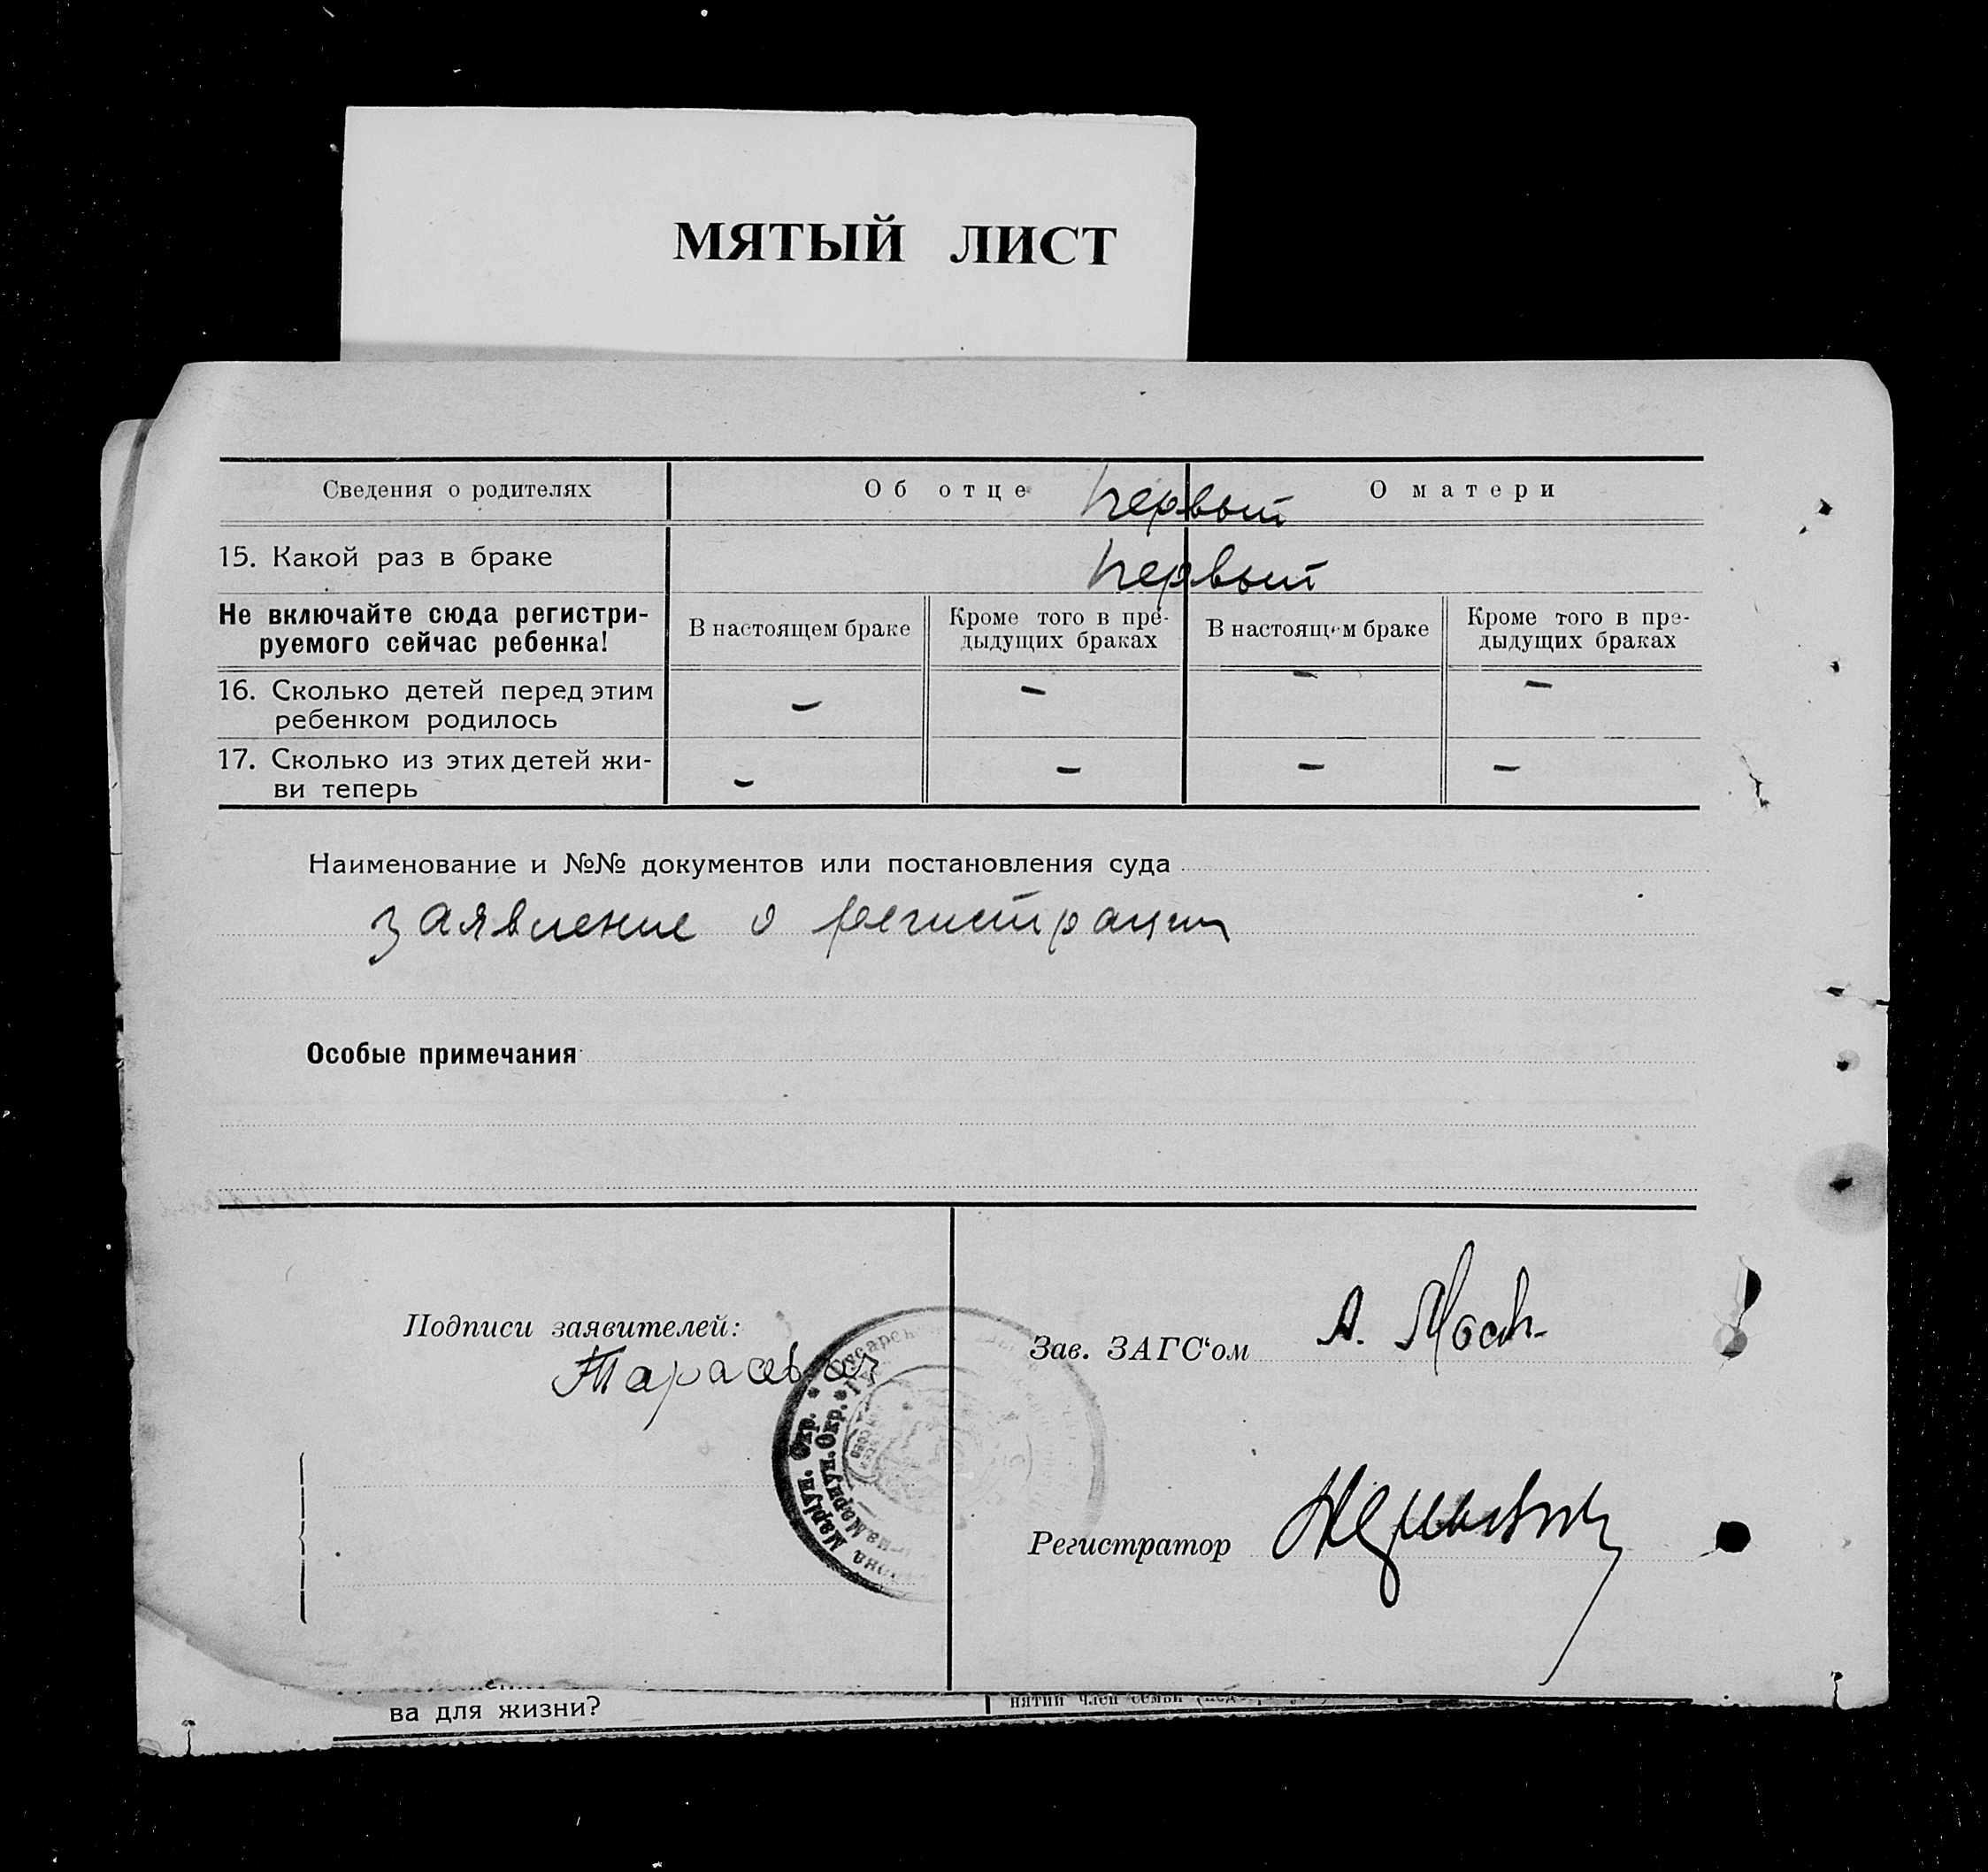 МЯТЫЙ ЛИСТ
Сведения о родителях
Об отце
О матери
первый
15. Какой раз в браке
первый
Не включайте сюда регистри-
руемого сейчас ребенка!
В настоящем браке
Кроме того в пре-
дыдущих браках
В настоящем браке
Кроме того в пре-
дыдущих браках
16. Сколько детей перед этим
ребенком родилось
– – – –
17. Сколько из этих детей жи-
ви теперь
– – – –
Наименование и №№ документов или постановления суда
заявление о регистрации
Особые примечания
Подписи заявителей:
Зав. ЗАГС‘ом
Регистратор
Маріуп. Окр. *
Мариуп. Окр. *
ва для жизни?